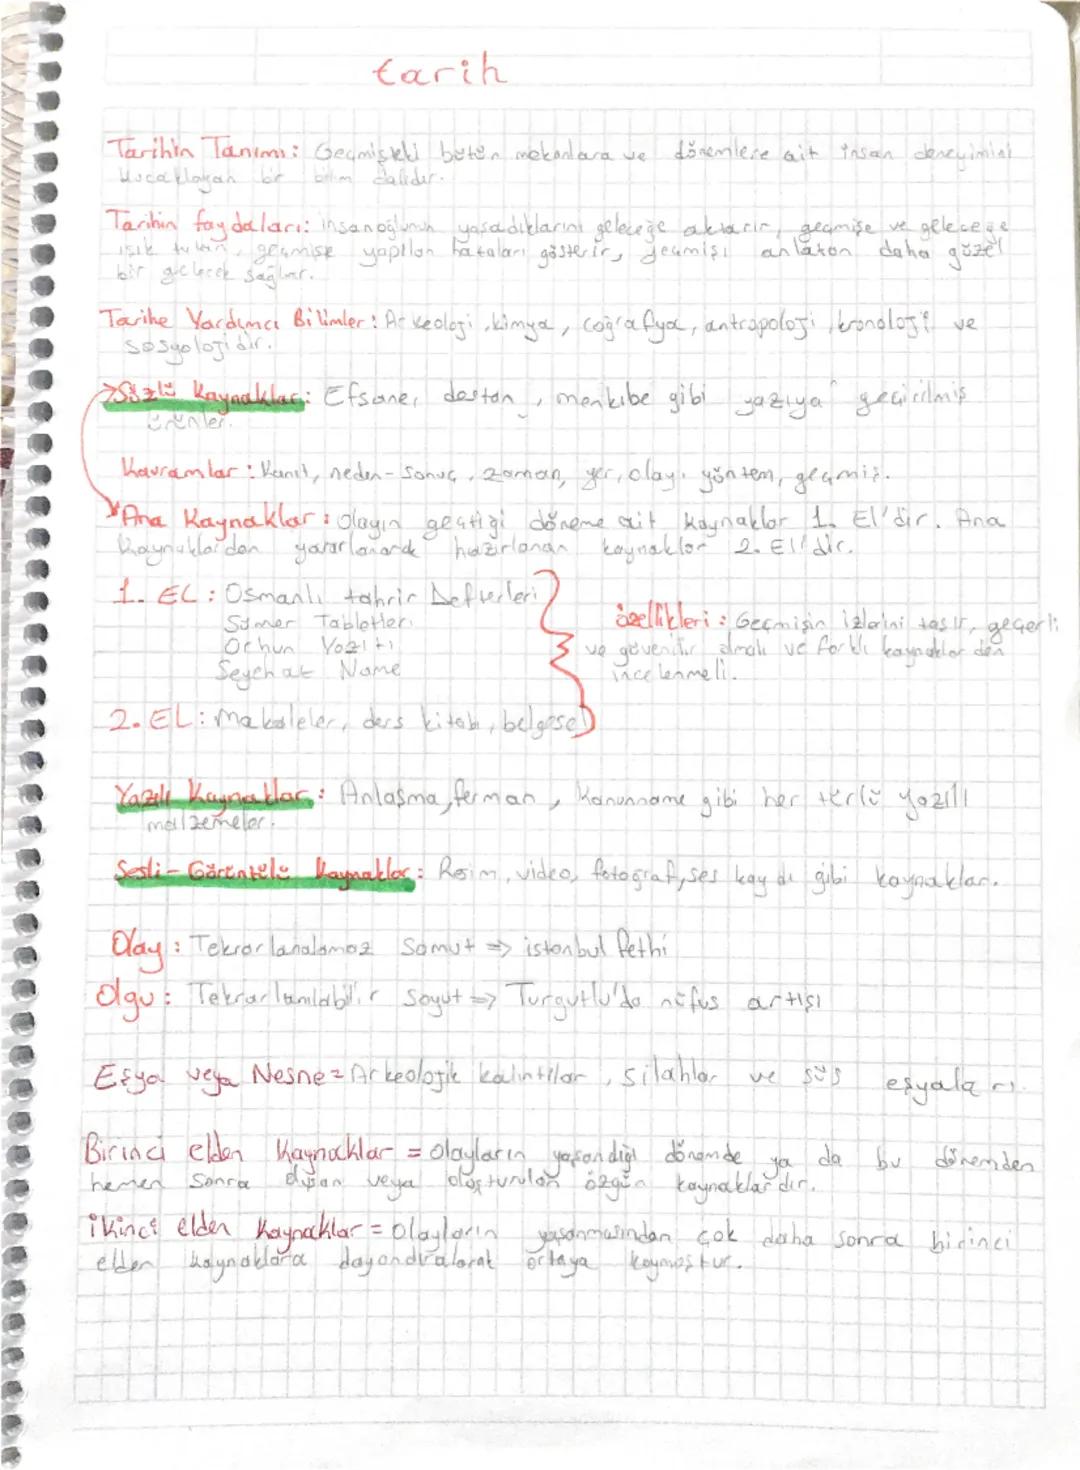 tarih
Tarihin Tanımı: Geçmişteki bütün mekanlara ve dönemlere ait insan deneyimini
kucaklayan bir bilim dalıdır.
Tarihin faydaları: insanoğlunun yaşadıklarını geleceğe aktarır, geçmişe ve geleceğe
ışık tutan, geçmişe yapılan hataları gösterir, geçmişi anlatan daha güzel
bir gelecek sağlar.
Tarihe Yardımcı Bilimler: Arkeoloji, kimya, coğrafya, antropoloji, kronoloji ve
sosyolojidir.
Sözlü Kaynaklar: Efsane, destan, menkıbe gibi yazıya geçirilmiş
ürünler.
Kavramlar: Kanıt, neden-sonuç, zaman, yer, olay, yöntem, geçmiş.
Ana Kaynaklar: Olayın geçtiği döneme ait kaynaklar 1. El'dir. Ana
Kaynaklardan yararlanarak hazırlanan kaynaklar 2. El'dir.
1. EL: Osmanlı tahrir Defterleri
Sümer Tabletleri
Orhun Yazıtı
Seyehat Name
özellikleri: Geçmişin izlerini taşır, geçerli
ve güvenilir olmalı ve farklı kaynaklardan
incelenmeli.
2. EL: Makaleler, ders kitabı, belgesel
Yazılı Kaynaklar: Anlaşma, ferman, Kanunname gibi her türlü yazılı
malzemeler.
Sesli-Görüntülü Kaynaklar: Resim, video, fotoğraf, ses kaydı gibi kaynaklar.
Olay: Tekrarlanalamaz Somut => istanbul fethi
Olgu: Tekrarlanılabilir Soyut => Turgutlu'da nüfus artışı
Eşya veya Nesne = Arkeolojik kalıntılar, silahlar ve süs eşyaları.
Birinci elden Kaynaklar = Olayların yaşandığı dönemde ya da bu dönemden
hemen sonra oluşan veya oluşturulan özgün kaynaklardır.
ikinci elden Kaynaklar = Olayların yaşanmasından çok daha sonra birinci
elden kaynaklara dayandıralarak ortaya koymuştur.